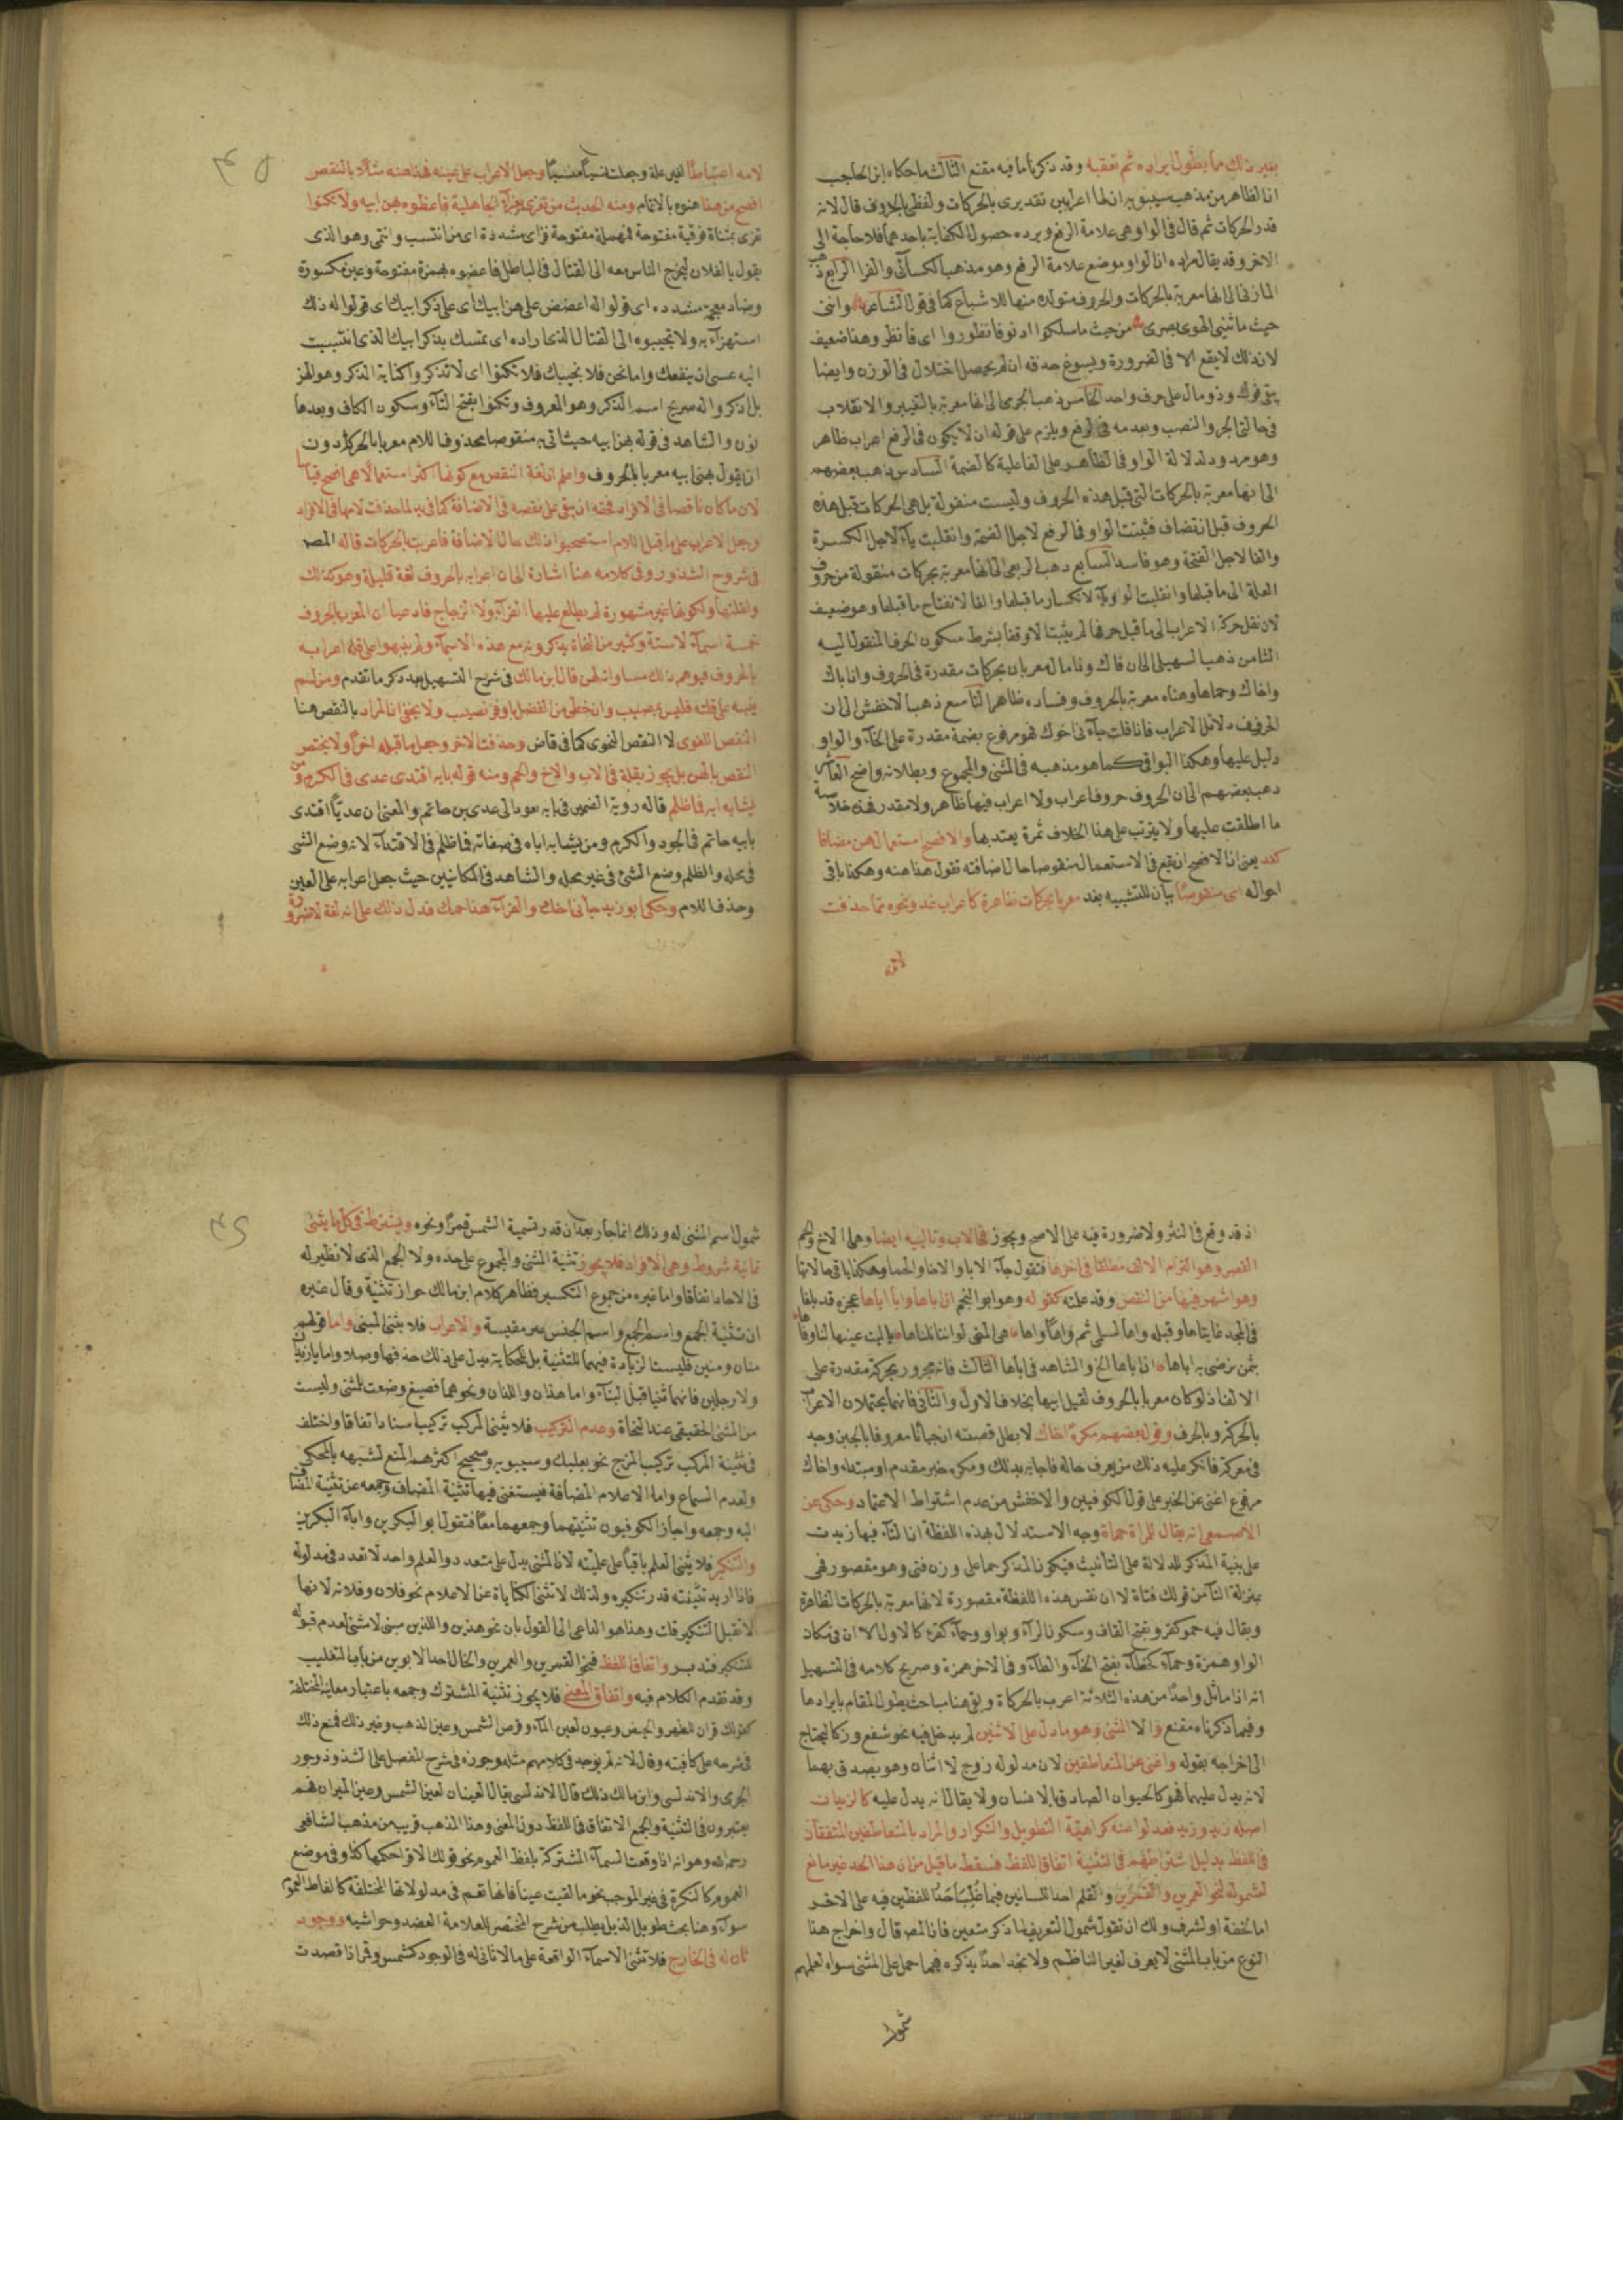 بغير ذلك مما يطول ايراده ثم تعقبه وقد ذكرنا ما فيه مقنع الثالث ما حكاه ابن الحاجب
ان الظاهر من مذهب سيبويه ان لها اعرابين تقديري بالحركات ولفظي بالحروف قال لانه
قدر الحركات ثم قال في الواو هي علامة الرفع ويرده حصول الكفاية باحدهما فلا حاجة الى
الاخر وقد يقال مراده ان الواو موضع علامة الرفع وهو مذهب الكسائي والفرا الرابع ذهب
المازني الى انها معربة بالحركات والحروف متولدة منها للاشباع كما في قول الشاعر وانني
حيث ما يثني الهوى بصري من حيث ما سلكوا ادنو فانظوروا اي فانظر وهذا ضعيف
لان ذلك لا يقع الا في الضرورة ويسوغ حذفه ان لم يحصل اختلال في الوزن وايضا
يبقى فوك وذو مال على حرف واحد الخامس ذهب الجرمي الى انها معربة بالتغيير والانقلاب
في حالتي الجر والنصب وبعدمه في الرفع ويلزم على قوله ان لا يكون في الرفع اعراب ظاهر
وهو مردود لدلالة الواو في الظاهر على الفاعلية كالضمة السادس ذهب بعضهم
الى انها معربة بالحركات التي قبل هذه الحروف وليست منقولة بل هي الحركات قبل هذه
الحروف قبل ان تضاف فثبتت الواو في الرفع لاجل الضمة وانقلبت ياء لاجل الكسرة
والفا لاجل الفتحة وهو فاسد السابع ذهب الربعي الى انها معربة بحركات منقولة من حروف
العلة الى ما قبلها وانقلبت الواو ياء لانكسار ما قبلها والفا لانفتاح ما قبلها وهو ضعيف
لان نقل حركة الاعراب الى ما قبل حرفها لم يثبت الا وقفا بشرط سكون الحرف المنقول اليه
الثامن ذهب السهيلي الى ان فاك وذا مال معربان بحركات مقدرة في الحروف وان اباك
واخاك وحماها وهناه معربة بالحروف وفساده ظاهر التاسع ذهب الاخفش الى ان
الحروف دلائل الاعراب فاذا قلت جاءني اخوك فهو مرفوع بضمة مقدرة على الخاء والواو
دليل عليها وهكذا البواقي كما هو مذهبه في المثنى والمجموع وبطلانه واضح العاشر
ذهب بعضهم الى ان الحروف حروف اعراب ولا اعراب فيها ظاهر ولا مقدر فهذه خلاصة
ما اطلعت عليها ولا يترتب على هذا الخلاف ثمرة يعتد بها والافصح استعمال هن مضافا
كغد يعني ان الافصح ان يقع في الاستعمال منقوصا حال اضافته تقول هذا هنه وهكذا باقي
احواله اي منقوصا بيان للتشبيه بغد معربا بحركات ظاهرة كاعراب غد ونحوه مما حذفت
لامه
لامه اعتباطا لغير علة وجعلت نسيا منسيا وجعل الاعراب على عينه فهذا هنه مثلا بالنقص
افصح من هذا هنوه بالاتمام ومنه الحديث من تعزى بعزاء الجاهلية فاعضوه بهن ابيه ولا تكنوا
تعزى بمثناة فوقية مفتوحة فمهملة مفتوحة فزاي مشددة اي من انتسب وانتمى وهو الذي
يقول يا لفلان ليخرج الناس معه الى القتال في الباطل فاعضوه بهمزة مفتوحة وعين مكسورة
وضاد معجمة مشددة اي قولوا له اعضض على هن ابيك اي على ذكر ابيك اي قولوا له ذلك
استهزاء به ولا تجيبوه الى القتال الذي اراده اي تمسك بذكر ابيك الذي انتسبت
اليه عسى ان ينفعك واما نحن فلا نجيبك فلا تكنوا اي لا تذكروا كناية الذكر وهو الهن
بل اذكروا له صريح اسم الذكر وهو المعروف وتكنوا بفتح التاء وسكون الكاف وبعدها
نون والشاهد في قوله بهن ابيه حيث اتى به منقوصا محذوف اللام معربا بالحركة دون
ان يقول بهني ابيه معربا بالحروف واعلم ان لغة النقص مع كونها اكثر استعمالا هي افصح قياسا
لان ما كان ناقصا في الافراد فحقه ان يبقى على نقصه في الاضافة كما في يد لما حذفت لامها في الافراد
وجعل الاعراب على ما قبل اللام استصحبوا ذلك حال الاضافة فاعربت بالحركات قاله المصـ
في شروح الشذور وفي كلامه هنا اشارة الى ان اعرابه بالحروف لغة قليلة وهو كذلك
ولقلتها ولكونها غير مشهورة لم يطلع عليها الفراء ولا الزجاج فادعيا ان المعرب بالحروف
خمسة اسماء لا ستة وكثير من النحاة يذكرونه مع هذه الاسماء ولم ينبهوا على قلة اعرابه
بالحروف فيوهم ذلك مساواته لهن قال ابن مالك في شرح التسهيل بعد ذكر ما تقدم ومن لم
ينبه على قلته فليس بمصيب وان حظي من الفضل باوفر نصيب ولا يخفى ان المراد بالنقص هنا
النقص اللغوي لا النقص النحوي كما في قاض وحذفت الاخر وجعل ما قبله اخرا ولا يختص
النقص بالهن بل يجوز بقلة في الاب والاخ والحم ومنه قوله بابه اقتدى عدي في الكرم ومن
يشابه ابه فما ظلم قاله رؤبة الضمير في بابه يعود الى عدي بن حاتم والمعنى ان عديا اقتدى
بابيه حاتم في الجود والكرم ومن يشابه اباه في صفاته فما ظلم في الاقتداء لانه وضع الشي
في محله والظلم وضع الشئ في غير محله والشاهد في المكانين حيث جعل اعرابه على العين
وحذف اللام وحكى ابو زيد جاءني اخك والفراء هذا حمك فدل ذلك على انه لغة لا ضرورة
اذ قد وقع في النثر ولا ضرورة فيه على الاصح ويجوز في الاب وتالييه ايضا وهما الاخ والحم
القصر وهو التزام الالف مطلقا في اخرها فتقول جاء الابا والاخا والحما وهكذا باقي حالاتها
وهو اشهر فيها من النقص وقد علمته كقوله وهو ابو النجم ان اباها وابا اباها عجزه قد بلغا
في المجد غايتاها وقبله واها لسلمى ثم واها واها هي المنى لو اننا نلناها يا ليت عينيها لنا وفاها
بثمن نرضى به اباها ان اباها الخ والشاهد في اباها الثالث فانه مجرور بحركة مقدرة على
الالف اذ لو كان معربا بالحروف لقيل ابيها بخلاف الاول والثاني فانهما يحتملان الاعراب
بالحركة وبالحرف وقول بعضهم مكره اخاك لا بطل قصته ان جبانا معروفا بالجبن وجد
في معركة فانكر عليه ذلك من يعرف حاله فاجابه بذلك ومكره خبر مقدم او مبتدا واخاك
مرفوع اغنى عن الخبر على قول الكوفيين والاخفش من عدم اشتراط الاعتماد وحكى عن
الاصمعي انه يقال للمراة حماة وجه الاستدلال بهذه اللفظة ان التاء فيها زيدت
على بنية المذكر للدلالة على التانيث فيكون المذكر حما على وزن فتى وهو مقصور فهي
بمنزلة التاء من قولك فتاة لا ان نفس هذه اللفظة مقصورة لانها معربة بالحركات الظاهرة
ويقال فيه حمو كقرو بفتح القاف وسكون الراء وبواو وحمأ كقرء كالاول الا ان في مكان
الواو همزة وحمأ كخطأ بفتح الخاء والطاء وفي الاخر همزة وصريح كلامه في التسهيل
انه اذا ماثل واحدا من هذه الثلاثة اعرب بالحركاة وبقي هنا مباحث يطول المقام بايرادها
وفيما ذكرناه مقنع و الا المثنى وهو ما دل على الاثنين لم يدخل فيه نحو شفع وزكا ليحتاج
الى اخراجه بقوله واغنى عن المتعاطفين لان مدلوله زوج لا اثنان وهو يصدق بهما
لانه يدل عليهما فهو كالحيوان الصادق بالانسان ولا يقال انه يدل عليه كالزيدان
اصله زيد وزيد فعدلوا عنه كراهية التطويل والتكرار والمراد بالمتعاطفين المتفقان
في اللفظ بدليل اشتراطهم في التثنية اتفاق اللفظ فسقط ما قيل من ان هذا الحد غير مانع
لشموله لنحو العمرين والقمرين والقلم احد اللسانين فيما غلب احد اللفظين فيه على الاخر
اما لخفة او لشرف ولك ان تقول شمول التعريف لما ذكر متعين فان المصـ قال واخراج هذا
النوع من باب المثنى لا يعرف لغير الناظم ولا نجد احدا يذكره فيما حمل على المثنى سواه لعلمهم
شمول
شمول اسم المثنى له وذلك انما جاز بعد ان قدر تسمية الشمس قمرا ونحوه ويشترط في كل ما يثنى
ثمانية شروط وهي الافراد فلا يجوز تثنية المثنى والمجموع على حده ولا الجمع الذي لا نظير له
في الاحاد اتفاقا واما غيره من جموع التكسير فظاهر كلام ابن مالك جواز تثنيته وقال غيره
ان تثنية الجمع واسم الجمع واسم الجنس غير مقيسة والاعراب فلا يثنى المبنى واما قولهم
منان ومنين فليست الزيادة فيهما للتثنية بل للحكاية يدل على ذلك حذفها وصلا واما يا زيدان
ولا رجلين فانهما ثنيا قبل البناء واما هذان واللذان ونحوهما فصيغ وضعت للمثنى وليست
من المثنى الحقيقي عند النحاة وعدم التركيب فلا يثنى المركب تركيب اسناد اتفاقا واختلف
في تثنية المركب تركيب المزج نحو بعلبك وسيبويه وصحح اكثرهم المنع لشبهه بالمحكي
ولعدم السماع واما الاعلام المضافة فيستغنى فيها تثنية المضاف وجمعه عن تثنية المضاف
اليه وجمعه واجاز الكوفيون تثنيتهما وجمعهما معا فتقول ابو البكرين واباء البكرين
والتنكير فلا يثنى العلم باقيا على علميته لان المثنى يدل على متعدد والعلم واحد لا تعدد في مدلوله
فاذا اريد تثنيته قدر تنكيره ولذلك لا تثنى الكناياة عن الاعلام نحو فلان وفلانه لانها
لا تقبل التنكير قلت وهذا هو الداعي الى القول بان نحو هذين واللذين مبني لا مثنى لعدم قبوله
للتنكير فتدبر واتفاق اللفظ فنحو القمرين والعمرين والخال احد الابوين من باب التغليب
وقد تقدم الكلام فيه واتفاق المعنى فلا يجوز تثنية المشترك وجمعه باعتبار معانيه المختلفة
كقولك قران للطهر والحيض وعيون لعين الماء وقرص الشمس وعين الذهب وغير ذلك فمنع ذلك
في شرحه على كافيته وقال لانه لم يوجد في كلامهم مثله وجوزه في شرح المفصل على الشذوذ وجوز
الجزمي والاندلسي وابن مالك ذلك قال الاندلسي يقال العينان لعين الشمس وعين الميزان فهم
يعتبرون في التثنية والجمع الاتفاق في اللفظ دون المعنى وهذا المذهب قريب من مذهب الشافعي
رحمه الله وهو انه اذا وقعت الاسماء المشتركة بلفظ العموم نحو قولك الاقراء حكمها كذا او في موضع
العموم كالنكرة في غير الموجب نحو ما لقيت عينا فانها تعم في مدلولاتها المختلفة كالفاظ العموم
سواء وهنا بحث طويل الذيل يطلب من شرح المختصر للعلامة العضد وحواشيه ووجود
ثان له في الخارج فلا تثنى الاسماء الواقعة على ما لا ثاني له في الوجود كشمس وقمر اذا قصدت